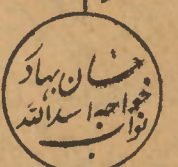 خان بهادر
خواجه اسدالله
نواب